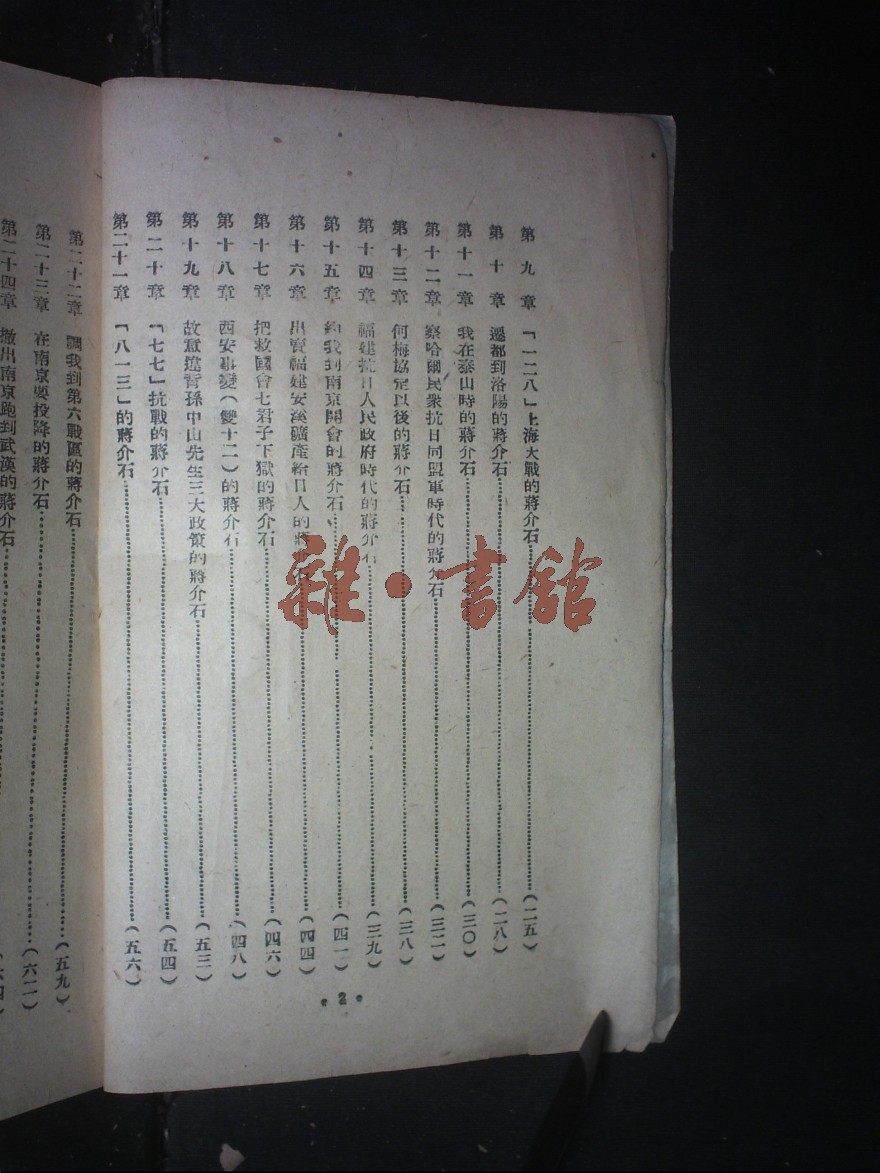 第九章 「一二八」上海大戰的蔣介石…………(二五)
第十章 遷都到洛陽的蔣介石…………(二八)
第十一章 我在泰山時的蔣介石…………(三〇)
第十二章 察哈爾民衆抗日同盟軍時代的蔣介石…………(三二)
第十三章 何梅協定以後的蔣介石…………(三八)
第十四章 福建抗日人民政府時代的蔣介石…………(三九)
第十五章 約我到南京開會的蔣介石…………(四一)
第十六章 出賣福建安溪礦產給日人的蔣介石…………(四四)
第十七章 把救國會七君子下獄的蔣介石…………(四六)
第十八章 西安事變(雙十二)的蔣介石…………(四八)
第十九章 故意違背孫中山先生三大政策的蔣介石…………(五三)
第二十章 「七七」抗戰的蔣介石…………(五四)
第二十一章 「八一三」的蔣介石…………(五六)
•2•
第二十二章 調我到第六戰區的蔣介石…………(五九)
第二十三章 在南京要投降的蔣介石…………(六二)
第二十四章 撤出南京跑到武漢的蔣介石…………(六四)
雜·書館